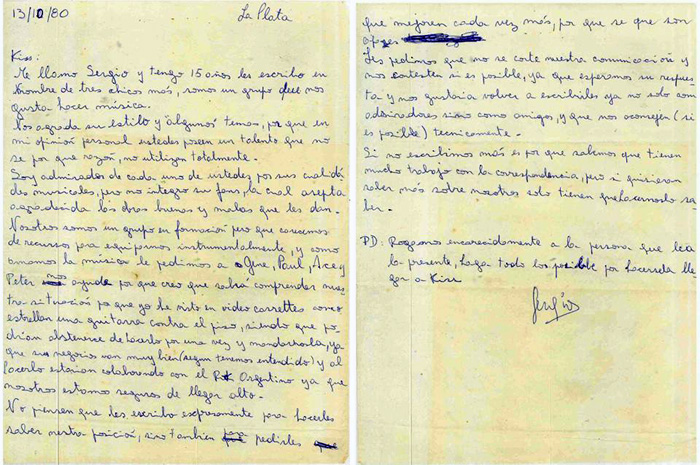 13/10/80 La Plata
Kiss:
Me llamo Sergio y tengo 15 años les escribo en
nombre de tres chicos más, somos un grupo que nos
gusta hacer música.
Nos agrada su estilo y "algunos" temas, por que en
mi opinión personal ustedes poseen un talento que no
se por que razón, no utilizan totalmente.
Soy admirador de cada uno de ustedes por sus cualida
des musicales, pero no integro su fans, la cual acepta
agradecida las obras buenas y malas que les dan.
Nosotros somos un grupo en formación pero que carecemos
de recursos para equiparnos instrumentalmente, y como
amamos la música le pedimos a Gene, Paul, Ace y
Peter nos ayude por que creo que sabrá comprender nues-
tra situación por que yo he visto en video carrettes como
estrellan una guitarra contra el piso, siendo que po-
drían abstenerse de hacerlo por una vez y mandarnosla, ya
que sus negocios van muy bien (segun tenemos entendido) y al
hacerlo estarian colaborando con el Rok Argentino ya que
nosotros estamos seguros de llegar alto.
No piensen que les escribo expresamente para hacerles
saber nuestra posición, sino tambien para pedirles
que mejoren cada vez más, por que se que son
capaces
Les pedimos que no se corte nuestra comunicación y
nos contesten si es posible, ya que esperamos su respues
ta y nos gustaria volver a escribirles ya no solo como
admiradores sino como amigos, y que nos aconsejen (si
es posible) tecnicamente.
Si no escribimos más es por que sabemos que tienen
mucho trabajo con la correspondencia, pero si quisieran
saber más sobre nosotros solo tienen que hacernoslo sa
ber.
PD: Rogamos encarecidamente a la persona que lea
la presente, haga todo lo posible por hacersela lle-
gar a Kiss
Sergio